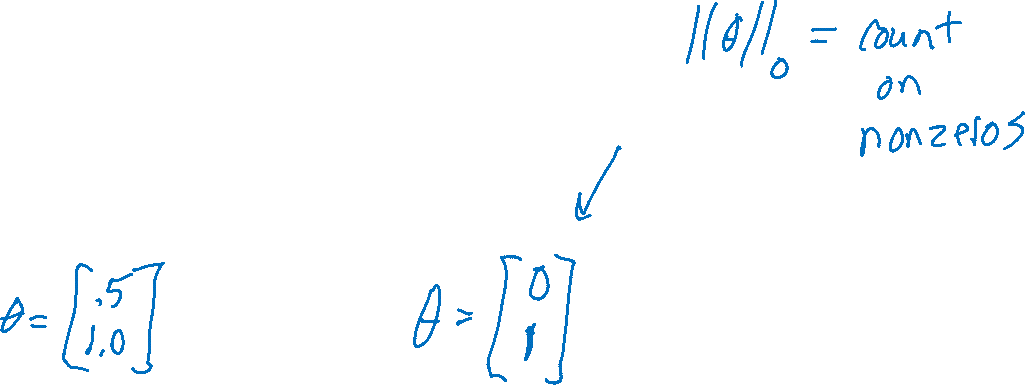 ||θ||₀ = count
on
nonzeros
θ = [.5
1.0]
θ = [0
1]